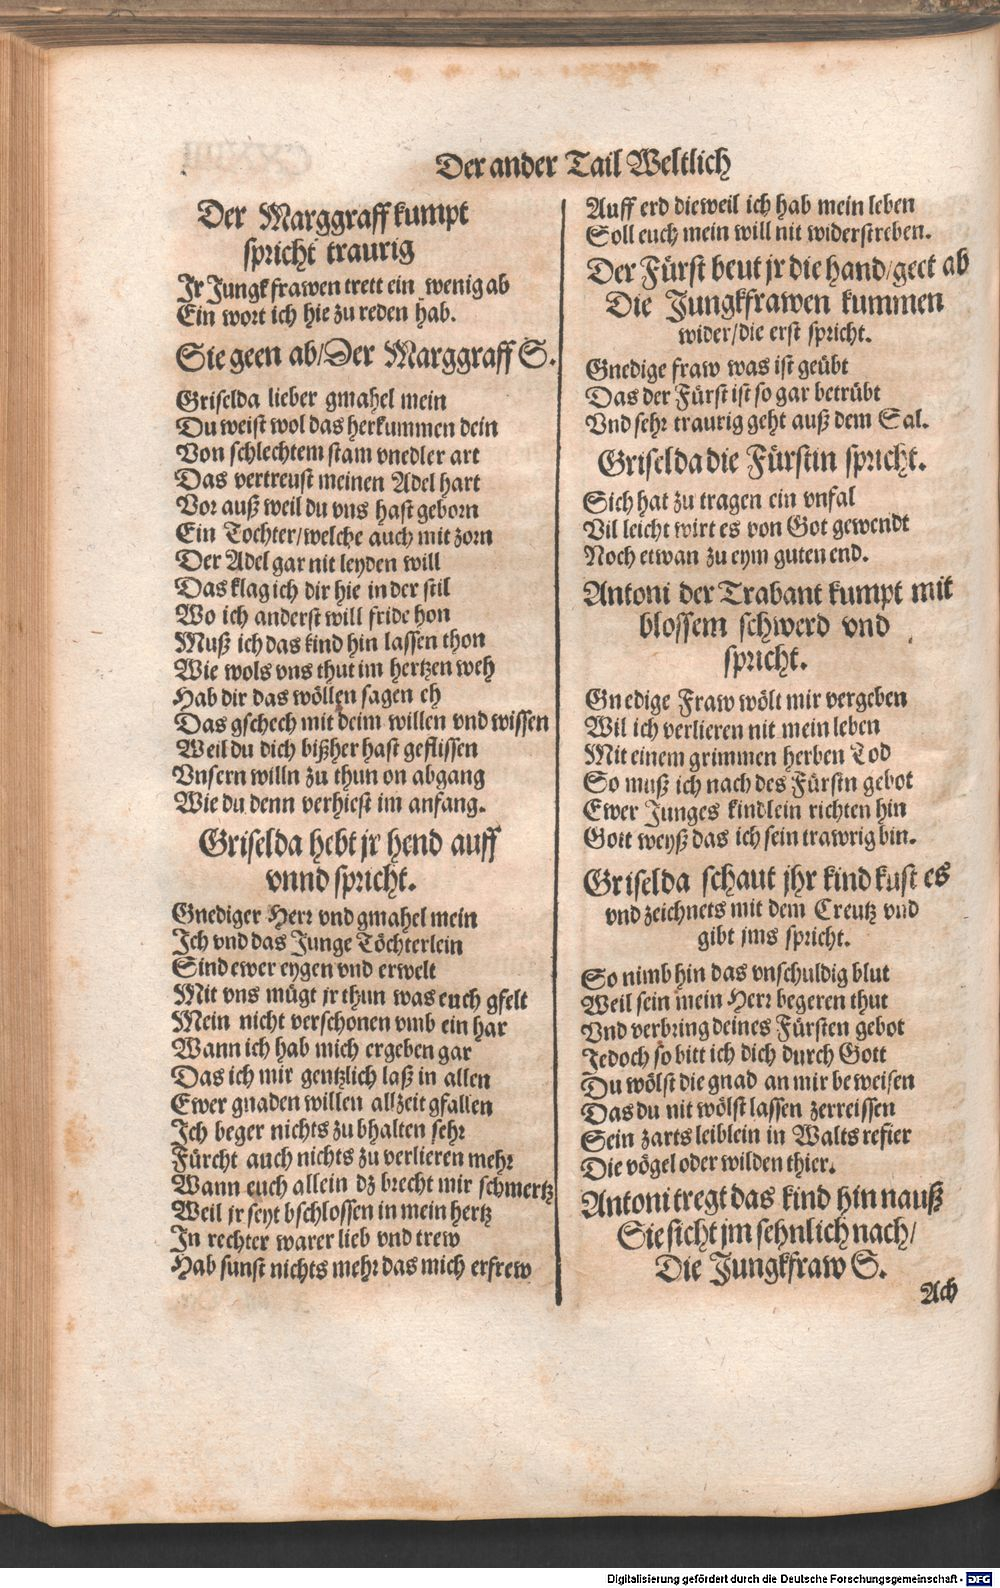 Der ander Tail Weltlich
Der Marggraff kumpt
spricht traurig
Jr Jungkfrawen trett ein wenig ab
Ein wort ich hie zu reden hab.
Sie geen ab/Der Marggraff S.
Griselda lieber gmahel mein
Du weist wol das herkummen dein
Von schlechtem stam vnedler art
Das vertreust meinen Adel hart
Vor auß weil du vns hast geborn
Ein Tochter/welche auch mit zorn
Der Adel gar nit leyden will
Das klag ich dir hie in der stil
Wo ich anderst will fride hon
Muß ich das kind hin lassen thon
Wie wols vns thut im hertzen weh
Hab dir das wöllen sagen eh
Das gschech mit deim willen vnd wissen
Weil du dich bißher hast geflissen
Vnsern willn zu thun on abgang
Wie du denn verhiest im anfang.
Griselda hebt jr hend auff
vnnd spricht.
Gnediger Herr vnd gmahel mein
Ich vnd das Junge Töchterlein
Sind ewer eygen vnd erwelt
Mit vns mügt jr thun was euch gfelt
Mein nicht verschonen vmb ein har
Wann ich hab mich ergeben gar
Das ich mir gentzlich laß in allen
Ewer gnaden willen allzeit gfallen
Ich beger nichts zu bhalten sehr
Fürcht auch nichts zu verlieren mehr
Wann euch allein dz brecht mir schmertz
Weil jr seyt bschlossen in mein hertz
In rechter warer lieb vnd trew
Hab sunst nichts mehr das mich erfrew
Auff erd dieweil ich hab mein leben
Soll euch mein will nit widerstreben.
Der Fürst beut jr die hand/geet ab
Die Jungkfrawen kummen
wider/die erst spricht.
Gnedige fraw was ist geübt
Das der Fürst ist so gar betrübt
Vnd sehr traurig geht auß dem Sal.
Griselda die Fürstin spricht.
Sich hat zu tragen ein vnfal
Vil leicht wirt es von Got gewendt
Noch etwan zu eym guten end.
Antoni der Trabant kumpt mit
blossem schwerd vnd
spricht.
Gnedige Fraw wölt mir vergeben
Wil ich verlieren nit mein leben
Mit einem grimmen herben Tod
So muß ich nach des Fürstn gebot
Ewer Junges kindlein richten hin
Gott weyß das ich sein trawrig bin.
Griselda schaut jhr kind kust es
vnd zeichnets mit dem Creutz vnd
gibt jms spricht.
So nimb hin das vnschuldig blut
Weil sein mein Herr begeren thut
Vnd verbring deines Fürsten gebot
Jedoch so bitt ich dich durch Gott
Du wölst die gnad an mir beweisen
Das du nit wölst lassen zerreissen
Sein zarts leiblein in Walts refier
Die vögel oder wilden thier.
Antoni tregt das kind hin nauß
Sie sicht jm sehnlich nach/
Die Jungkfraw S.
Ach
Digitalisierung gefördert durch die Deutsche Forschungsgemeinschaft - DFG